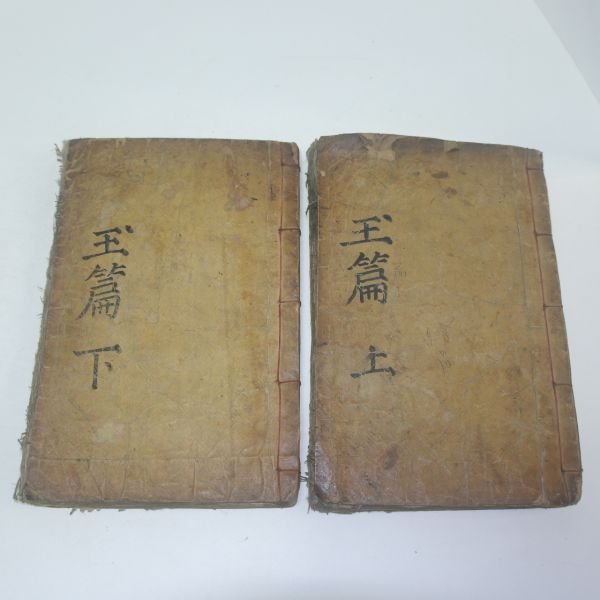 玉篇 下
玉篇 上